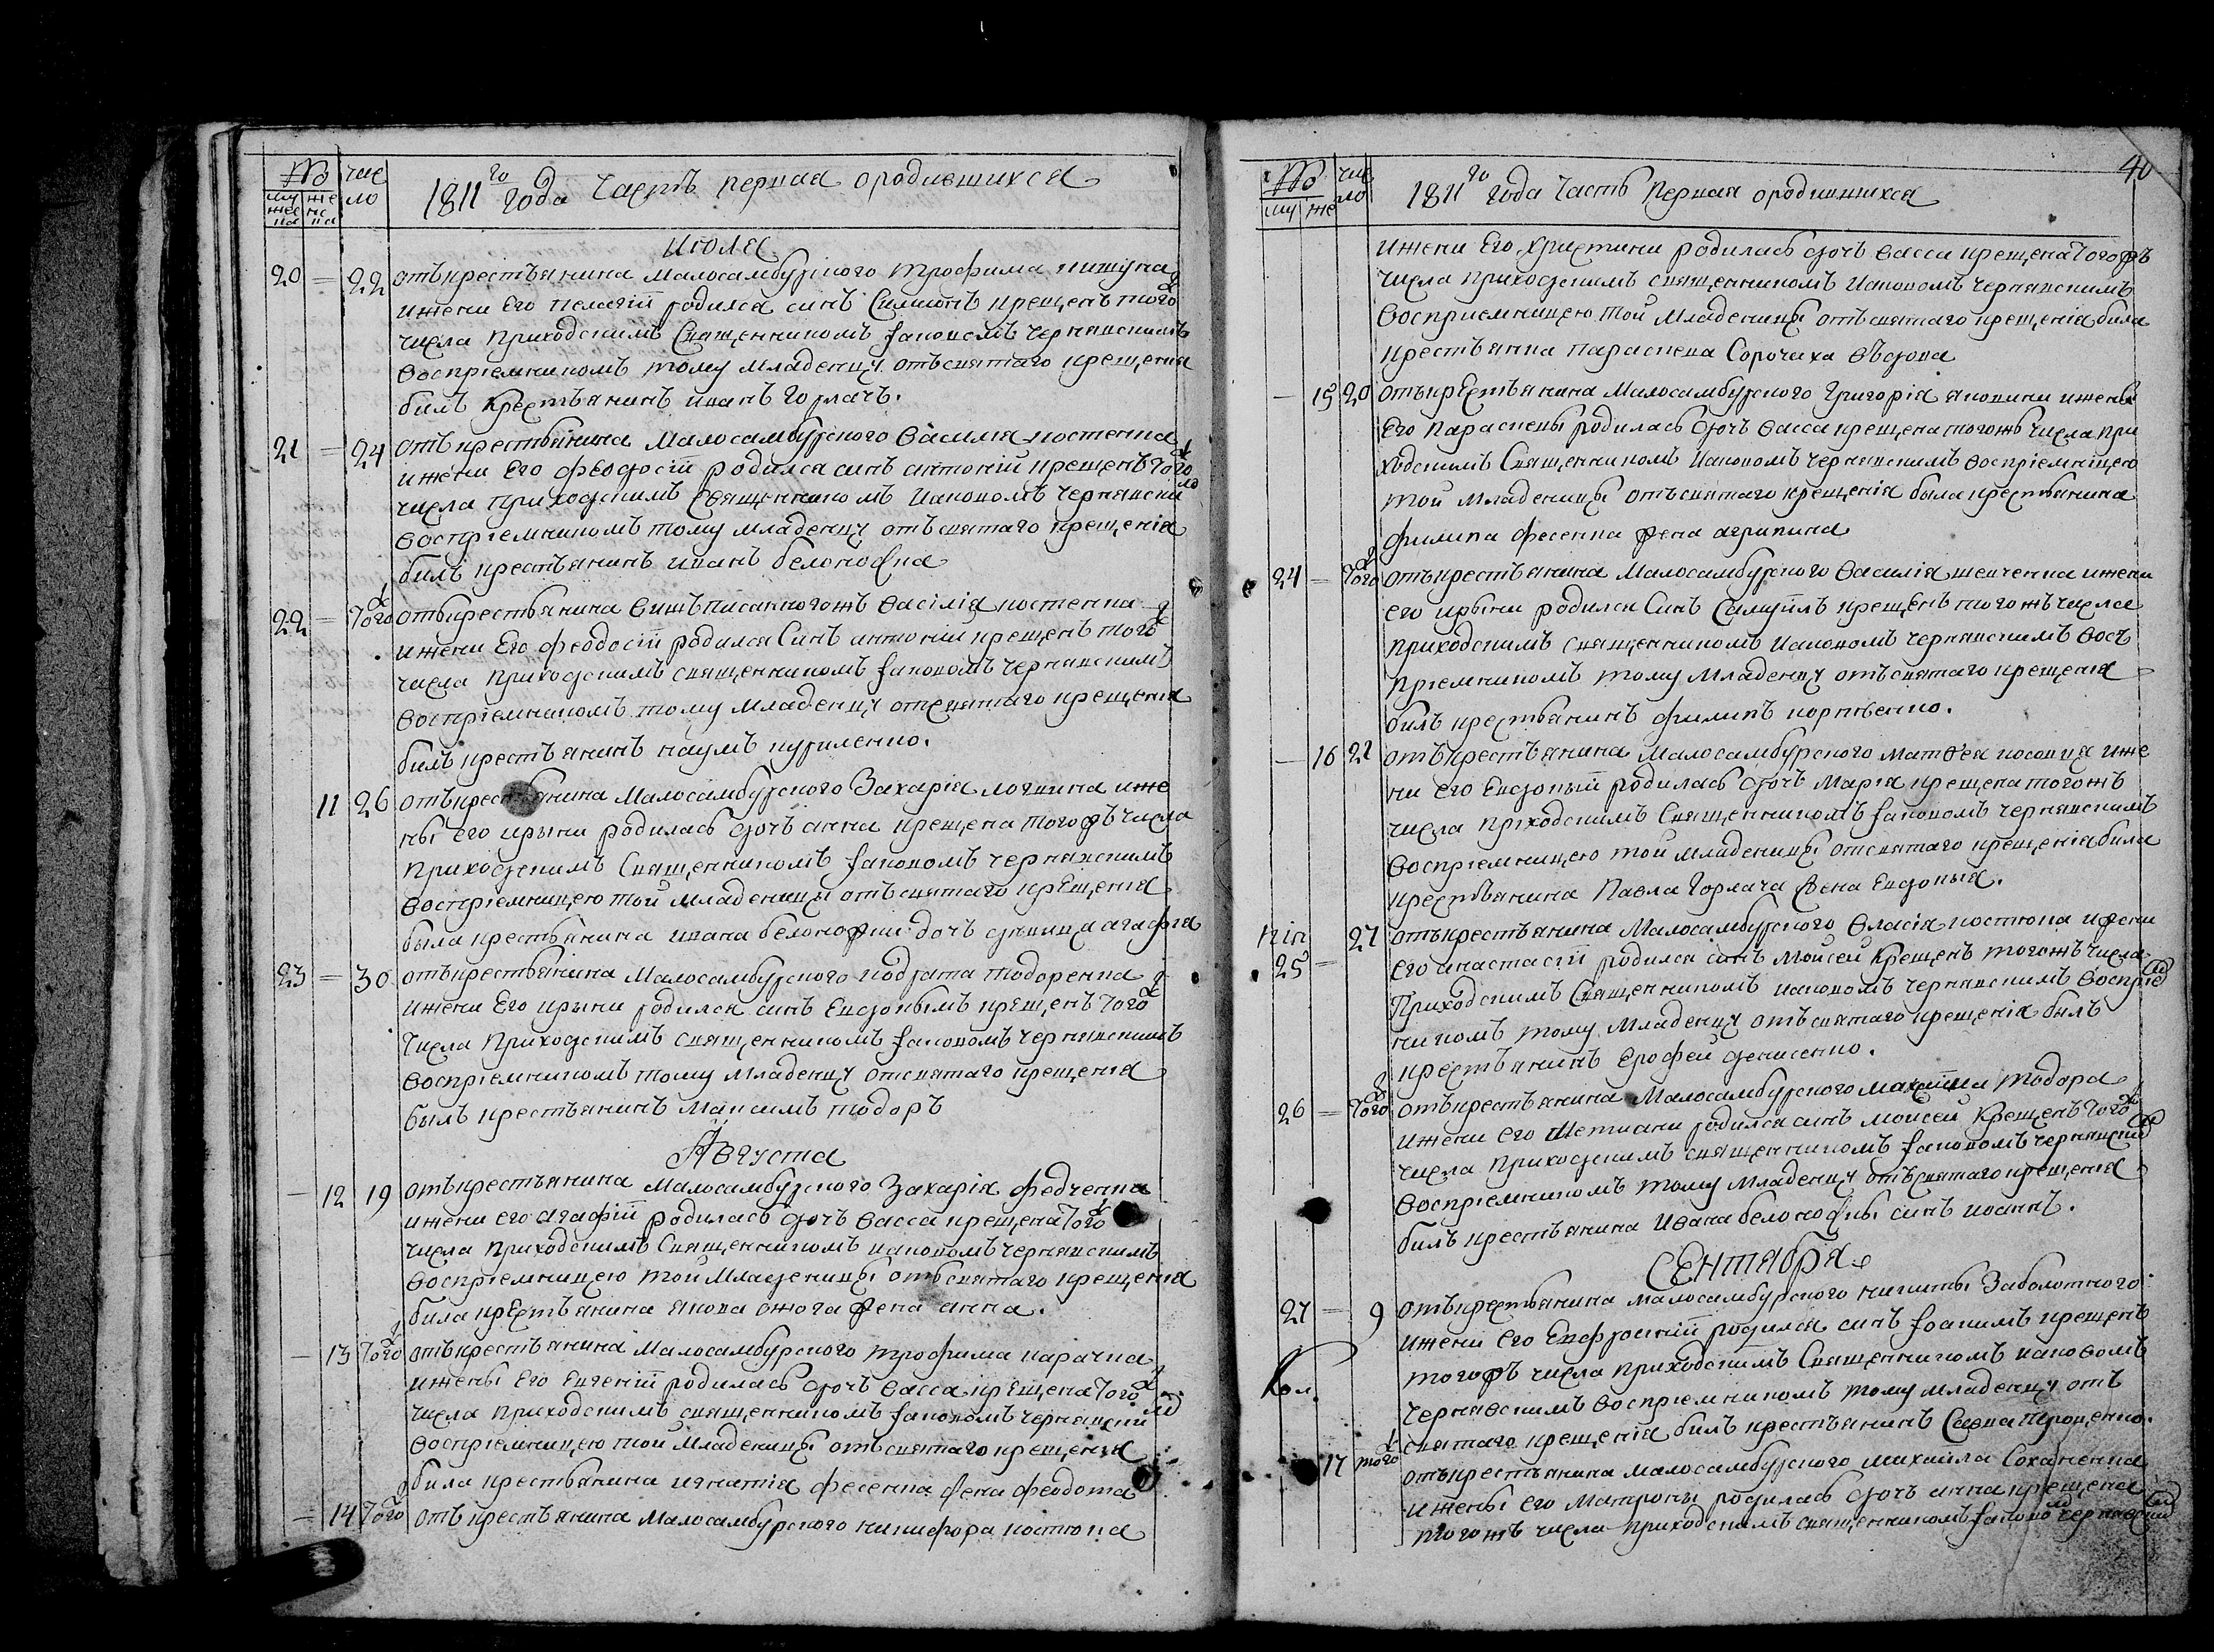 № чис
му же ло
жес нс
па па
1811го года часть первая ородившихся
Июля
20 = 22 отъ крестьянина Малосамбурского трофима пищуна
ижени Его пелагіи родился синъ Симионъ крещенъ тогож
числа приходскимъ Священникомъ Iаковомъ Чернявскимъ
восприемникомъ тому младенцу отъ святаго крещения
билъ крестьянинъ иванъ горлачъ.
21 = 24 отъ крестьянина Малосамбурского василия костенка
ижени Его феодосіи родился синъ антоній крещенъ тогож
числа приходскимъ Священникомъ Иаковомъ Чернявским
восприемникомъ тому младенцу отъ святаго крещеніа
билъ крестьянинъ иванъ белоножка
22 = тогож отъ крестьянина вишъписанногожъ васілія костенка
ижени Его феодосіи родился Синъ антоніи крещенъ тогож
числа приходскимъ священникомъ Iаковомъ Чернявскимъ
восприемникомъ тому младенцу отсвятаго крещения
билъ крестьянинъ наумъ
11 26 отъ крестьянина Малосамбурского Захаріа логвина иже
ны его ирыни родилась дочъ анна крещена тогожъ числа
приходскимъ Священникомъ Iаковомъ чернявскимъ
восприемницею той младеницы отъ святаго крещения
была крестьянина ивана белоножки дочъ дѣвица агафия
23 = 30 отъ крестьянина Малосамбурского кодрата тодоренка
ижени Его ирыни родился синъ Евдокымъ крещенъ тогож
числа приходскимъ священникомъ Iаковомъ чернявскимъ
восприемникомъ тому младенцу отсвятаго крещения
былъ крестьянинъ Максимъ тодоръ
Августа
— 12 19 отъ крестьянина Малосамбурского Захаріа федченка
ижени его агафіи родилась дочъ васса крещена тогож
числа приходскимъ Священникомъ иаковомъ чернявскимъ
восприемницею той младеницы отъ святаго крещения
била крестьянина якова ожога жена анна.
— 13 тогож отъ крестьянина Малосамбурского трофима карачка
ижены Его Евгеніи родилась дочъ васса крещена тогож
числа приходскимъ священникомъ Iаковомъ чернявским
восприемницею той младеницы отъ святаго крещения
била крестьянина игнатія фесенка жена феодота
— 14 тогож отъ крестьянина Малосамбурского никифора костюка
40
№ чис
му же ло
1811го года Часть Первая ородившихся
ижени Его христини родилась дочъ васса крещена тогожъ
числа приходскимъ священникомъ Иаковомъ чернявскимъ
восприемницею той младеницы отъ святаго крещеніа била
крестьянка параскева Сорочиха вдова
— 15 20 отъ крестьянина Малосамбурского Григоріа яковини ижены
Его Параскевы родилась дочъ васса крещена тогожъ числа при
ходскимъ Священникомъ Иаковомъ чернявскимъ восприемницею
той младеницы отъ святаго крещеніа была крестьянина
филипа фесенка жена агрипина
24 = тогож отъ крестьянина Малосамбурского василіа шевченка ижени
его ирыни родился Синъ Самуилъ крещенъ тогожъ числа
приходскимъ священникомъ Иаковомъ чернявскимъ восъ
приемникомъ тому младенцу отъ святаго крещения
билъ крестьянинъ филипъ корниенко.
— 16 21 отъ крестьянина Малосамбурского матвея косовця иже
ни его Евдокыи родилась дочъ Мария крещена тогожъ
числа приходскимъ Священникомъ Iаковомъ чернявскимъ
восприемницею той младеницы отсвятаго крещеніа била
крестьянина Павла горлача жена Евдокыя.
25 = 27 отъ крестьянина Малосамбурского власіа костюка ижени
его анастасіи родился синъ Моисей крещенъ тогожъ числа
Приходскимъ Священникомъ иаковомъ чернявскимъ восприем
никомъ тому младенцу отъ святаго крещеніа былъ
крестьянинъ Ерофей денисенко.
26 = тогож отъ крестьянина Малосамбурского максима тодора
ижени его Тетиани родился синъ моисей крещенъ тогож
числа приходскимъ священникомъ Iаковомъ чернявским
восприемникомъ тому младенцу отъ святаго крещения
билъ крестьянина Ивана белоножки синъ иоаннъ.
Сентября
27 = 9 отъ крестьянина малосамбурского никиты Заболотного
ижени его Евфросиніи родился синъ Iоакимъ крещенъ
тогожъ числа приходскимъ Священникомъ иаковомъ
чернявскимъ восприемникомъ тому младенцу отъ
святаго крещеніа билъ крестьянинъ Савка
17 тогож отъ крестьянина малосамбурского михаила Соханенка
ижены его Матроны родилась дочъ анна крещена
тогожъ числа приходскимъ священникомъ Iаковом чернявским